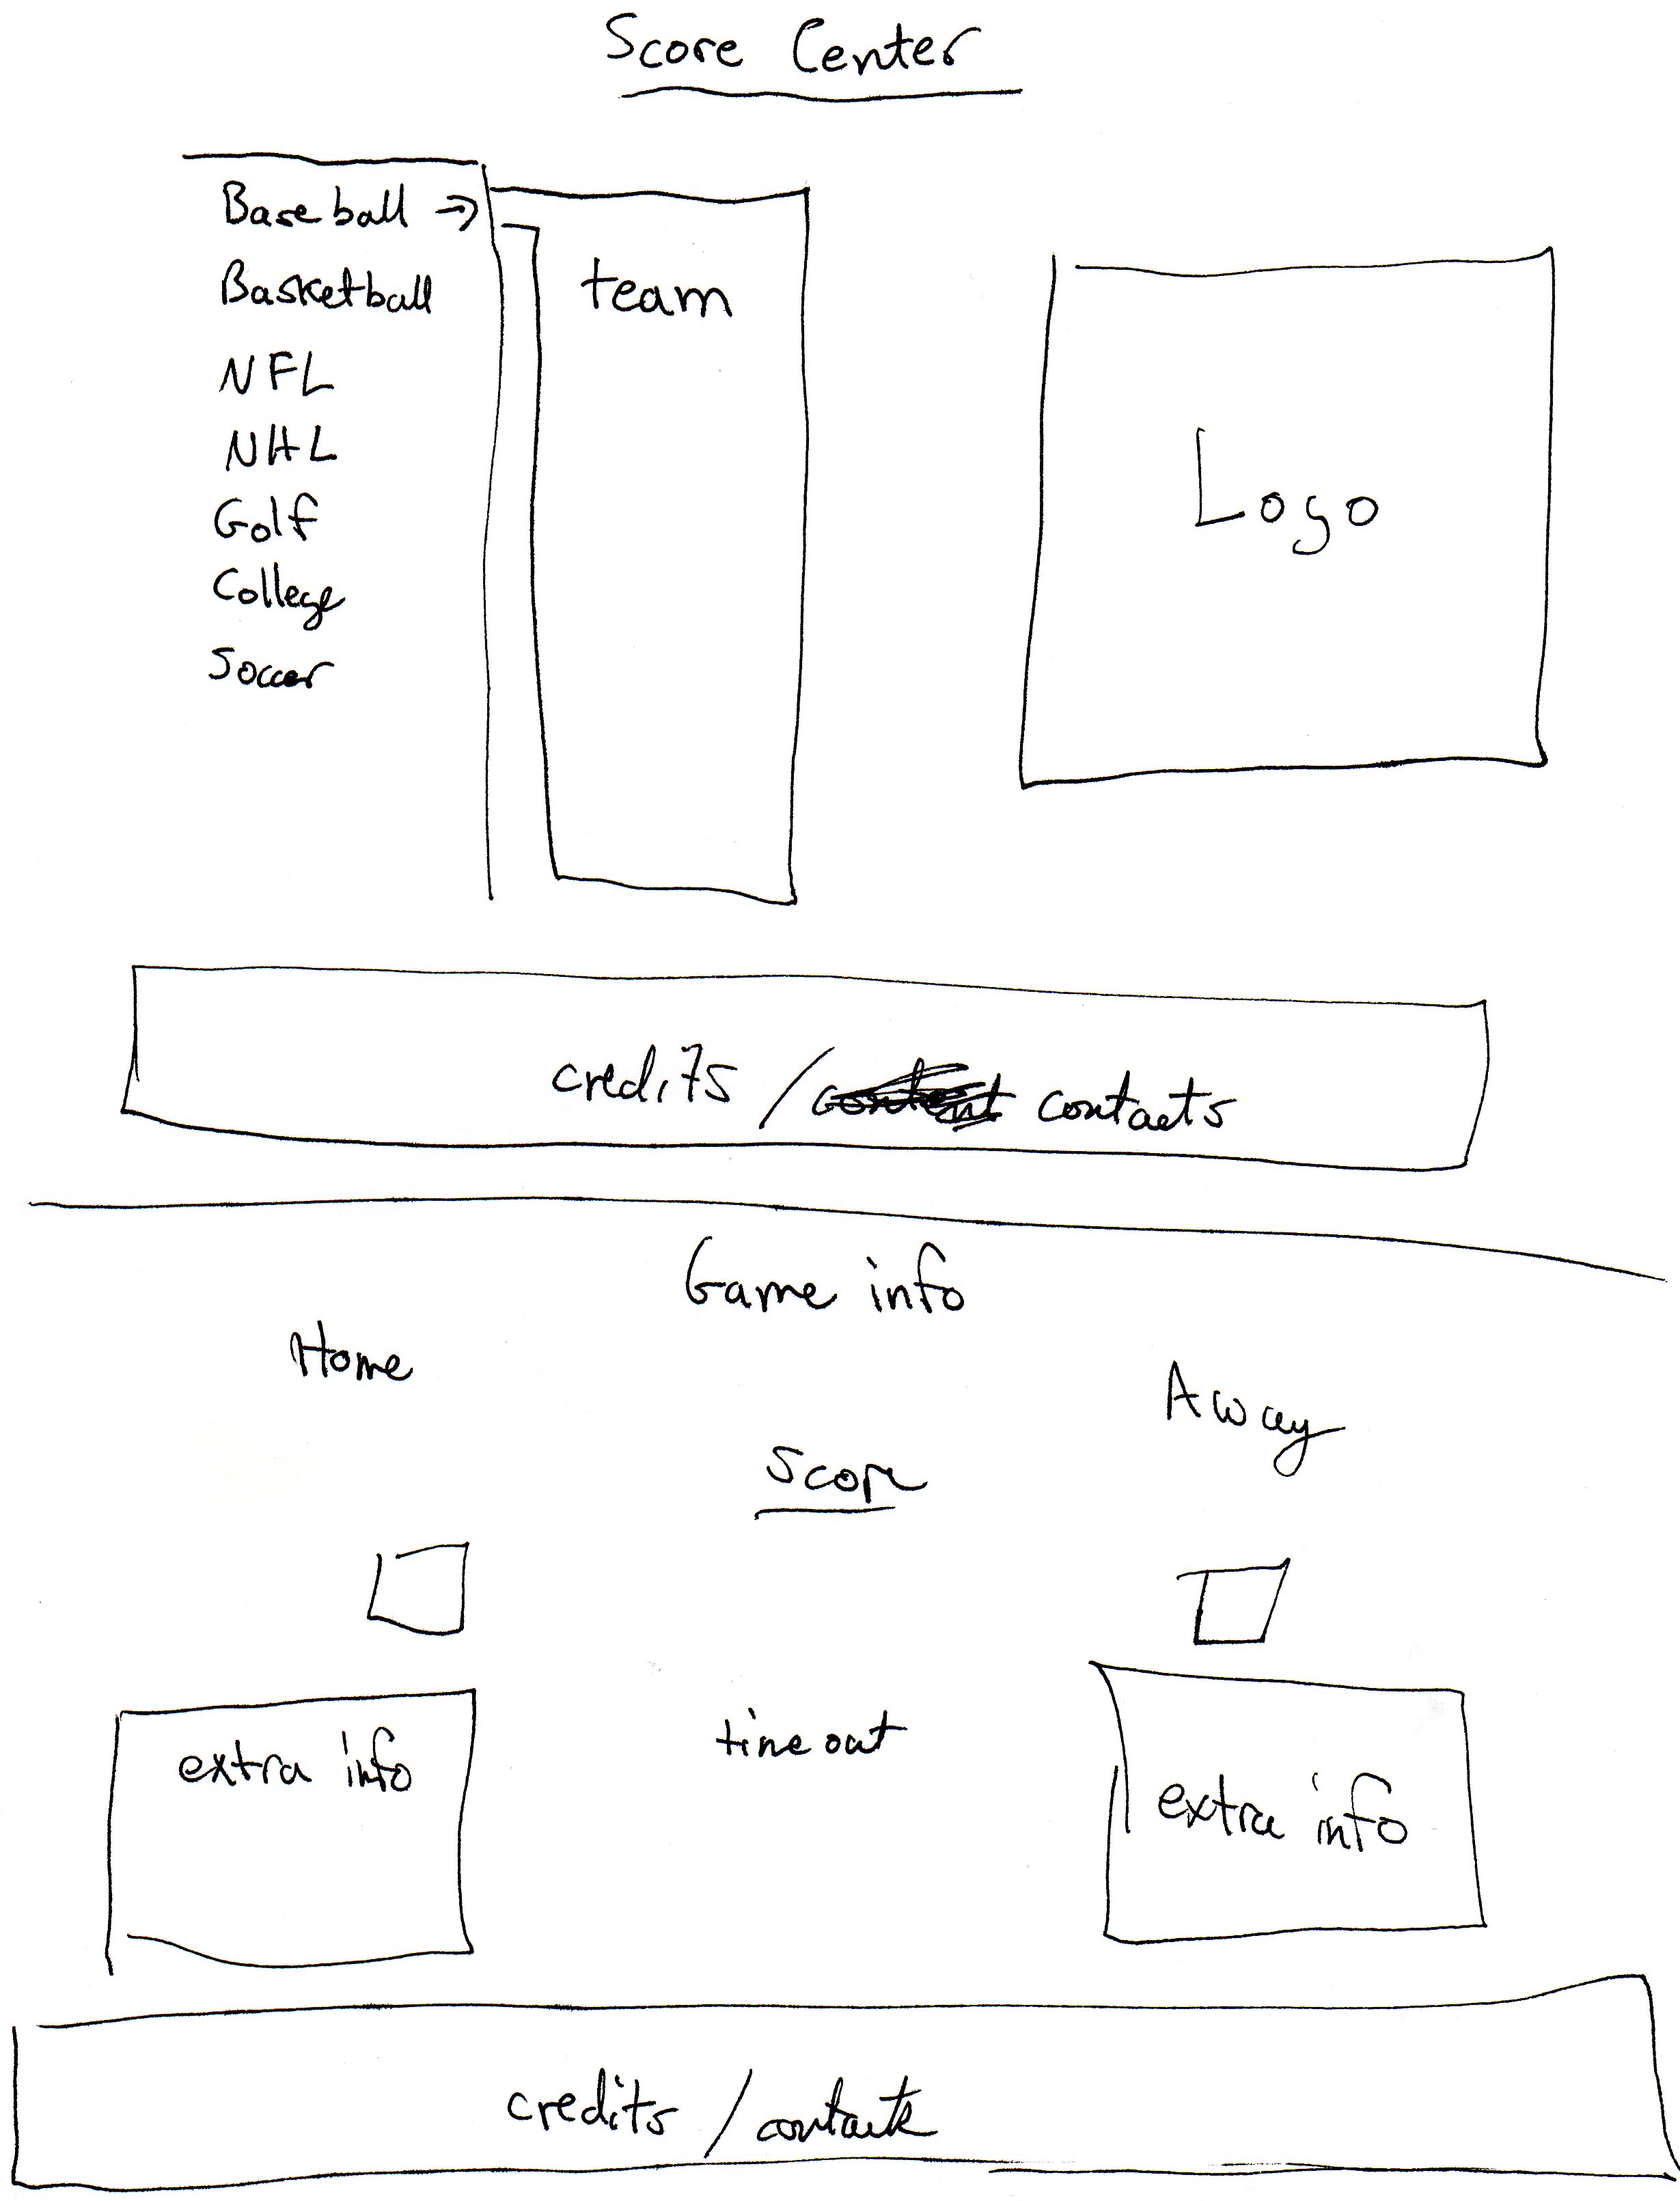 Score Center
Baseball →
Basketball
NFL
NHL
Golf
College
Soccer
team
Logo
credits / contacts
Game info
Home
Away
Score
extra info
time out
extra info
credits / contacts